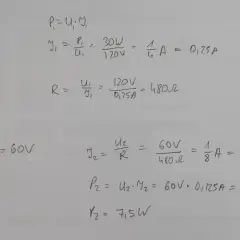 P₁ = U · I
I₁ = P₁/U₁ = 30W/120V = 1/4 A = 0,25A
R = U₁/I₁ = 120V/0,25A = 480Ω
= 60V
I₂ = U₂/R = 60V/480Ω = 1/8 A =
P₂ = U₂ · I₂ = 60V · 0,125A =
P₂ = 7,5W